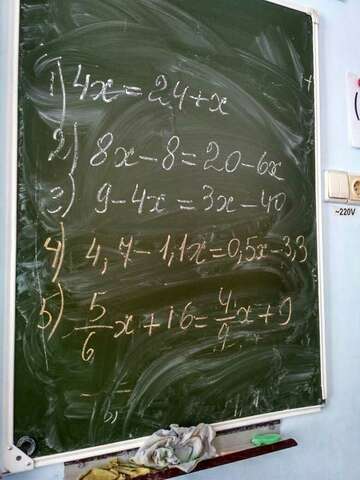 1) 4x = 24 + x
2) 8x - 8 = 20 - 6x
3) 9 - 4x = 3x - 40
4) 4,7 - 1,1x = 0,5x - 3,3
5) 5/6 x + 16 = 4/9 x + 9
~220V